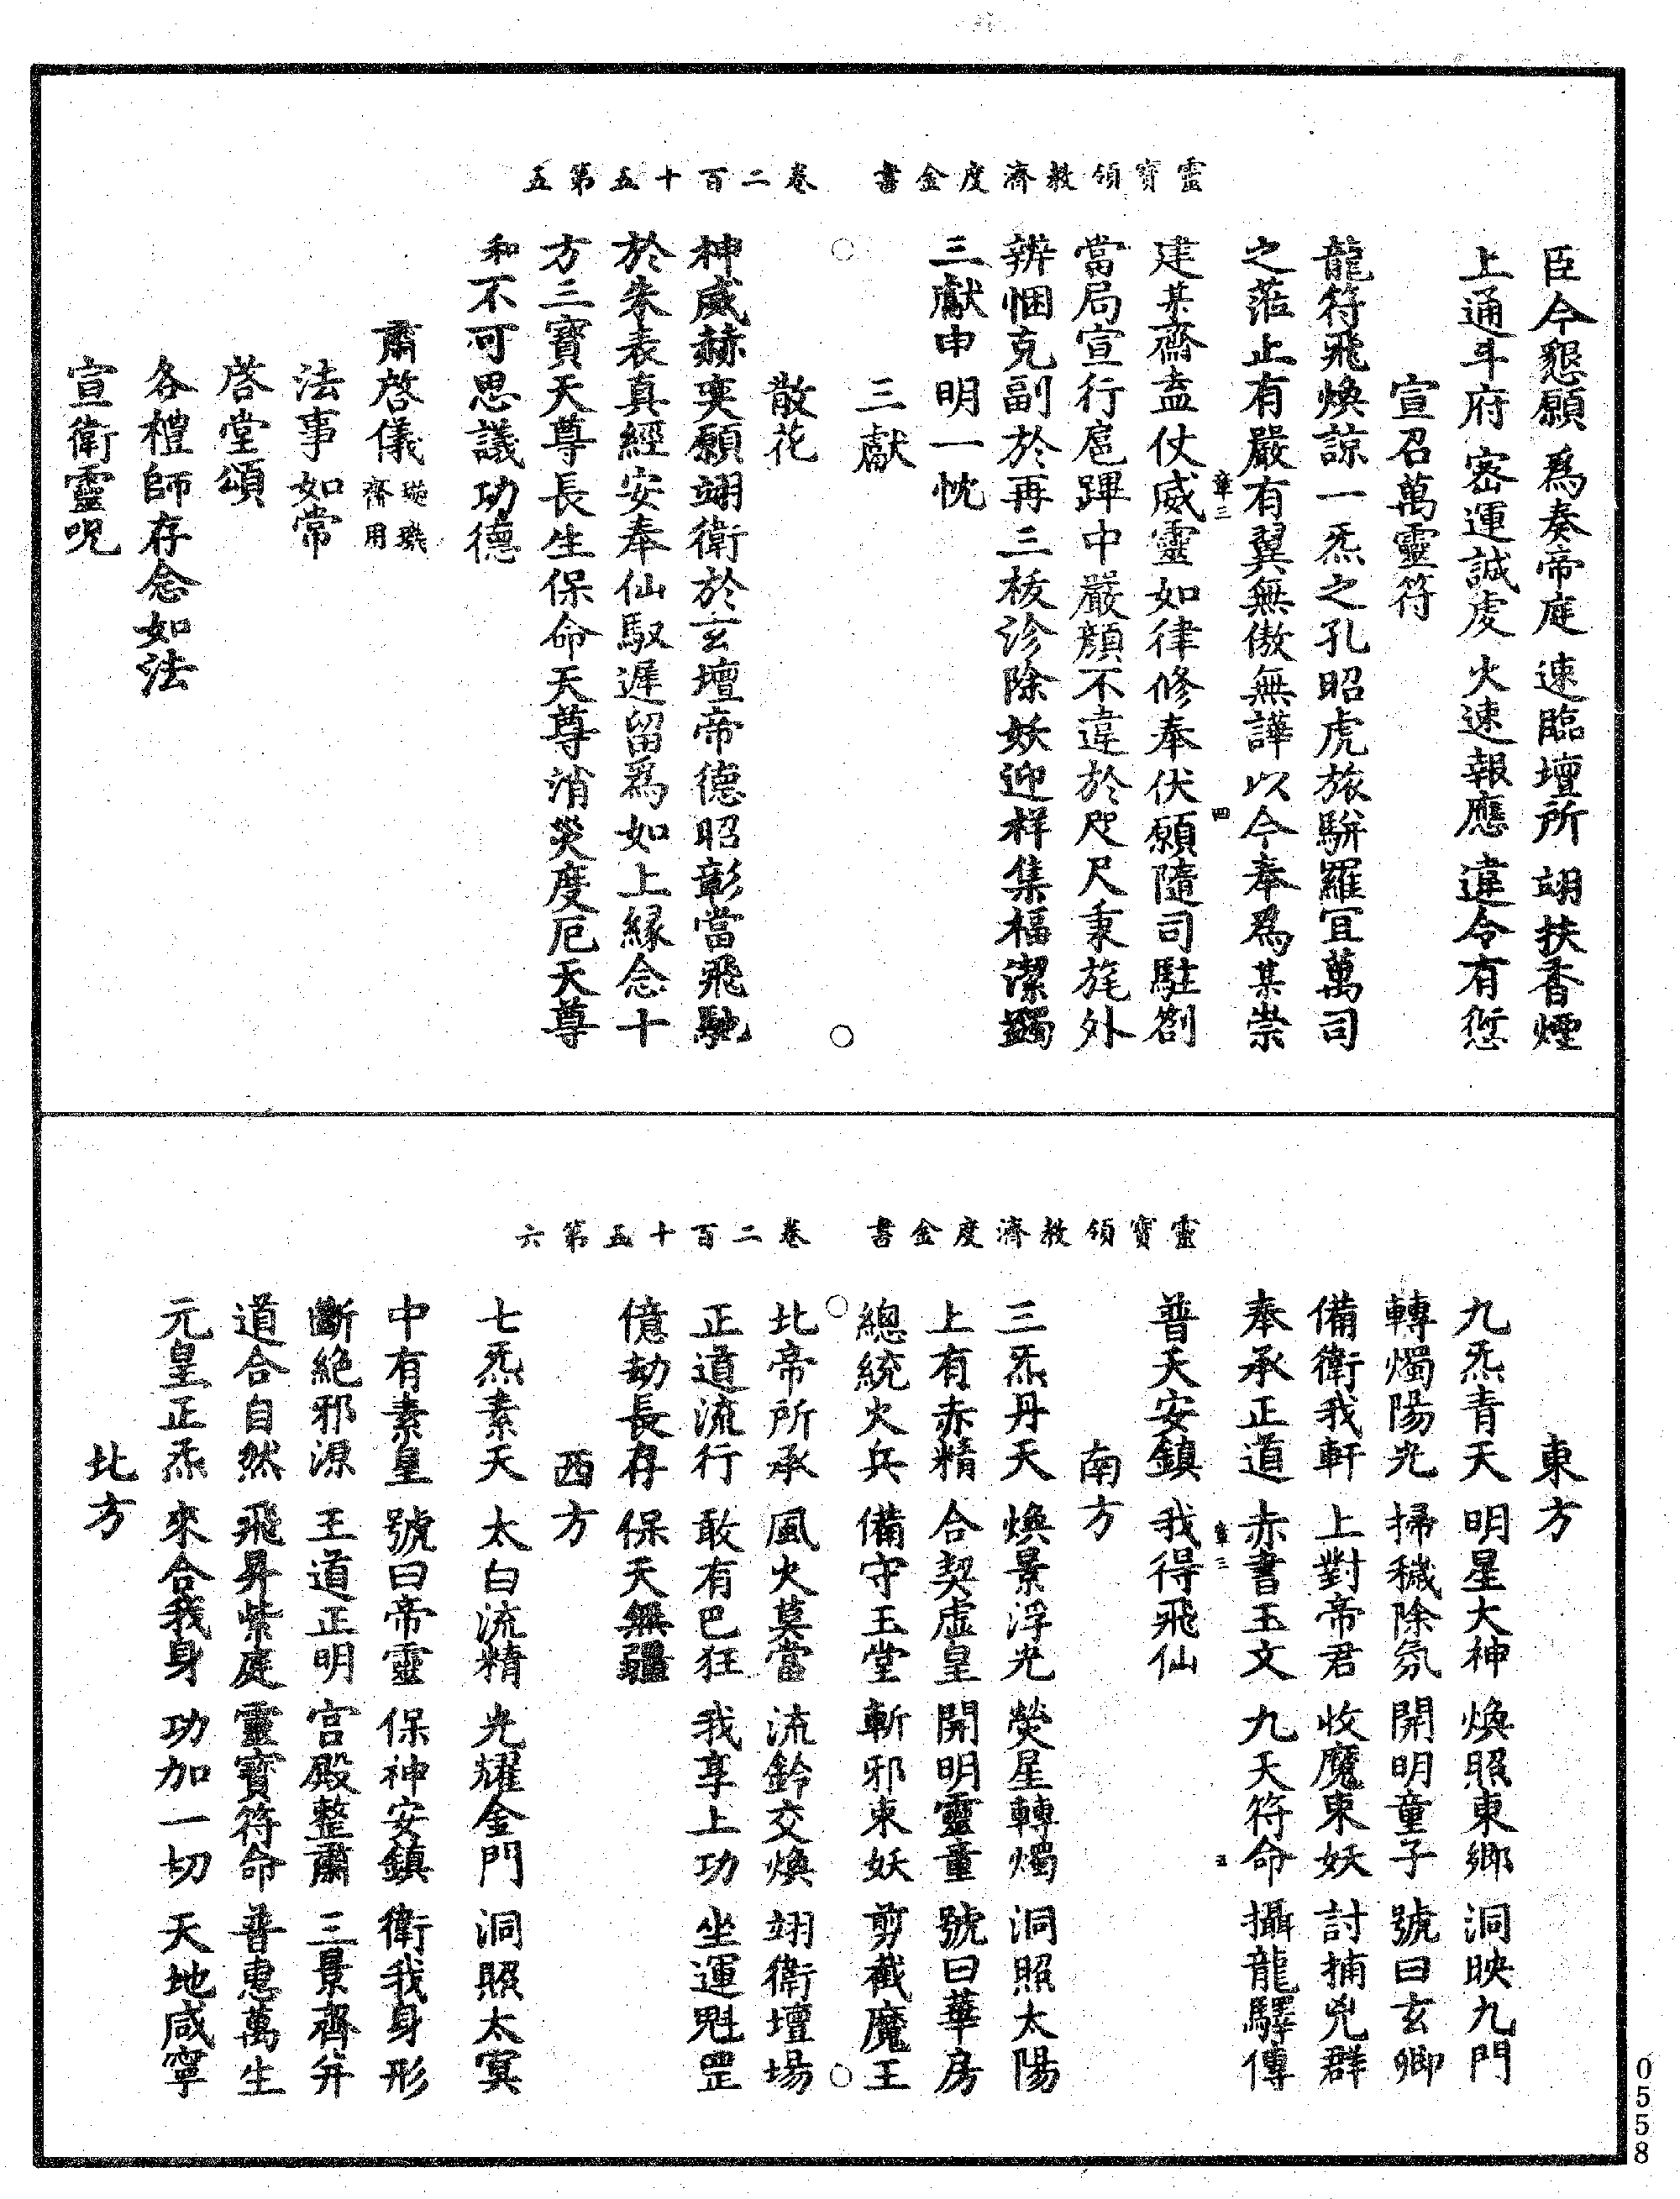 靈寶領教濟度金書　卷二百十五第五
臣今懇願　爲奏帝庭　速臨壇所　翊扶香煙
上通斗府　密運誠虔　火速報應　違令有愆
宣召萬靈符
龍符飛煥諒一炁之孔昭虎旅駢羅宜萬司
之蒞止有嚴有翼無傲無譁以今奉爲某崇
建某齋盍仗威靈如律修奉伏願隨司駐劄
當局宣行扈蹕中嚴顏不違於咫尺秉旄外
辨悃克副於再三祓沴除妖迎祥集福潔蠲
三獻申明一忱
三獻
散花
神威赫奕願翊衛於玄壇帝德昭彰當飛馳
於朱表真經安奉仙馭遲留爲如上緣念十
方三寶天尊長生保命天尊消災度厄天尊
和不可思議功德
肅啓儀璇璣齋用
法事如常
啓堂頌
各禮師存念如法
宣衛靈呪
章三
四
靈寶領教濟度金書　卷二百十五第六
東方
九炁青天　明星大神　煥照東鄉　洞映九門
轉燭陽光　掃穢除氛　開明童子　號曰玄卿
備衛我軒　上對帝君　收魔束妖　討捕兇群
奉承正道　赤書玉文　九天符命　攝龍驛傳
普天安鎮　我得飛仙
南方
三炁丹天　煥景浮光　熒星轉燭　洞照太陽
上有赤精　合契虛皇　開明靈童　號曰華房
總統火兵　備守玉堂　斬邪束妖　剪截魔王
北帝所承　風火莫當　流鈴交煥　翊衛壇場
正道流行　敢有巴狂　我享上功　坐運魁罡
億劫長存　保天無疆
西方
七炁素天　太白流精　光耀金門　洞照太冥
中有素皇　號曰帝靈　保神安鎮　衛我身形
斷絶邪源　王道正明　宮殿整肅　三景齊并
道合自然　飛昇紫庭　靈寶符命　普惠萬生
元皇正炁　來合我身　功加一切　天地咸寧
北方
章三
五
0558